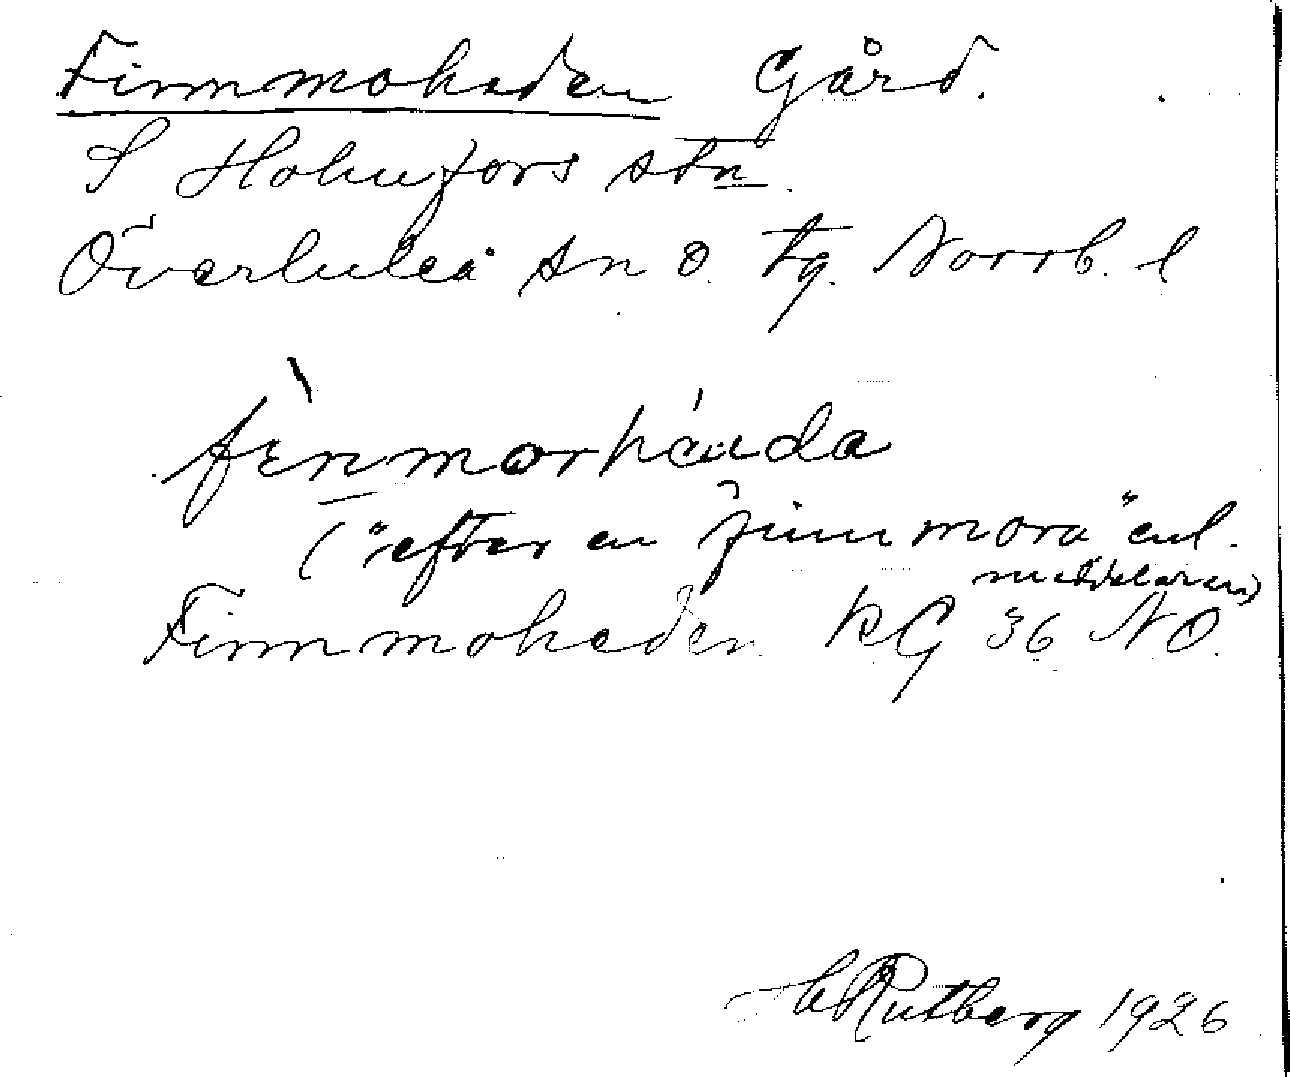 Finnmoheden Gård.
S Holmfors stn.
Överluleå sn Ö. tg. Norrb. l
fènmorhéada
("efter en finnmora" enl.
meddelaren)
Finnmoheden KG 36 NO.
H Rutberg 1926